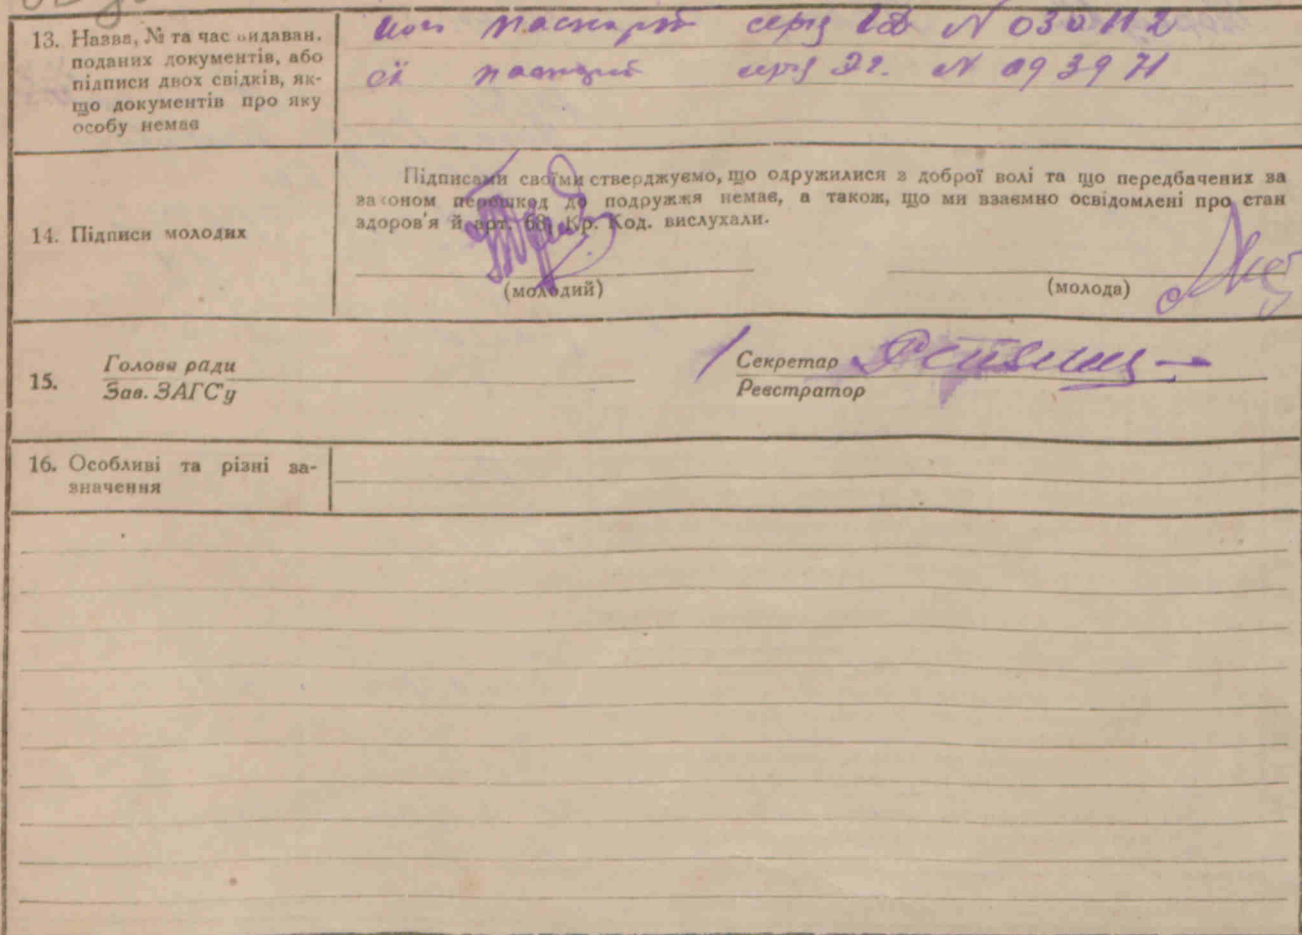 13. Назва, № та час видаван.
поданих документів, або
підписи двох свідків, як-
що документів про яку
особу немає
паспорт серія N 030112
її паспорт серія N 093971
14. Підписи молодих
Підписами своїми стверджуємо, що одружилися з доброї волі та що передбачених за
законом перешкод до подружжя немає, а також, що ми взаємно освідомлені про стан
здоров'я й арт. Кр. Код. вислухали.
(молодий) (молода)
15. Голова ради Секретар
Зав. ЗАГС'у Реєстратор
16. Особливі та різні за-
значення